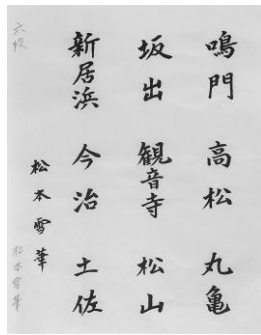 鳴門 高松 丸亀
坂出 観音寺 松山
新居浜 今治 土佐
松本雪華
六段
松本雪華